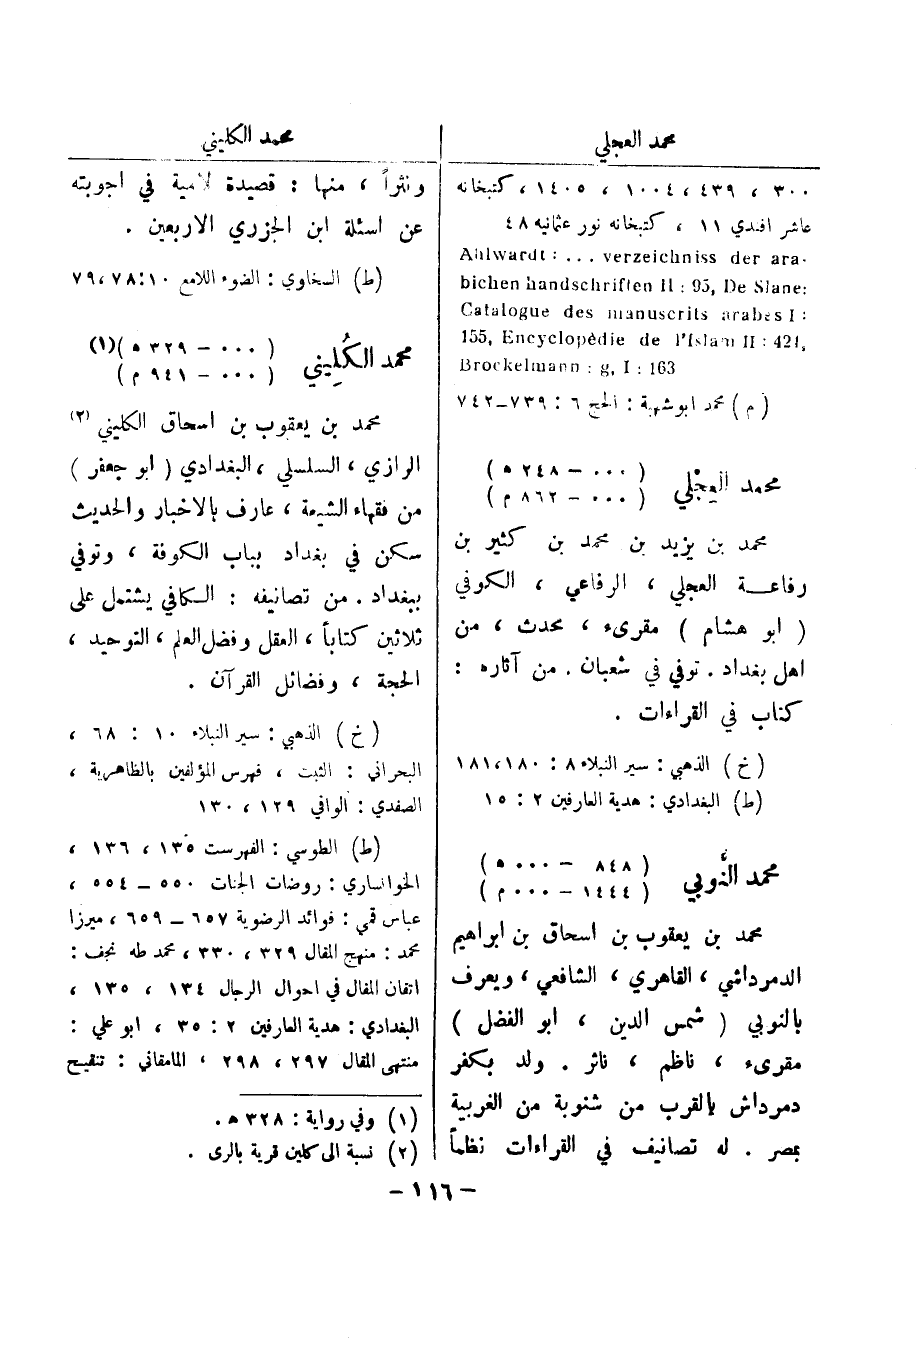 محمد العجلي
٣٠٠ ، ٤٣٩ ، ١٠٠٤ ، ١٤٠٥ ، كتبخانه
عاشر افندي ١١ ، كتبخانه نور عثمانيه ٤٨
Ahlwardt : ... verzeichniss der ara-
bichen handschriften II : 95, De Slane:
Catalogue des manuscrits arabes I :
155, Encyclopèdie de l'Islam II : 421,
Brockelmann : g, I : 163
(م) محمد ابو شهبة : الحج ٦ : ٧٣٩–٧٤٢
محمد العِجْلي ( ٠٠٠ – ٢٤٨ ه )
( ٠٠٠ – ٨٦٢ م )
محمد بن يزيد بن محمد بن كثير بن
رفاعة العجلي ، الرفاعي ، الكوفي
( ابو هشام ) مقرىء ، محدث ، من
اهل بغداد . توفي في شعبان . من آثاره :
كتاب في القراءات .
(خ) الذهبي : سير النبلاء ٨ : ١٨٠،١٨١
(ط) البغدادي : هدية العارفين ٢ : ١٥
محمد النُّوبي ( ٨٤٨ – ٠٠٠ ه )
( ١٤٤٤ – ٠٠٠ م )
محمد بن يعقوب بن اسحاق بن ابراهيم
الدمرداشي ، القاهري ، الشافعي ، ويعرف
بالنوبي ( شمس الدين ، ابو الفضل )
مقرىء ، ناظم ، ناثر . ولد بكفر
دمرداش بالقرب من شنوبة من الغربية
بمصر . له تصانيف في القراءات نظماً
محمد الكليني
ونثراً ، منها : قصيدة لامية في اجوبته
عن اسئلة ابن الجزري الاربعين .
(ط) السخاوي : الضوء اللامع ١٠:٧٨،٧٩
محمد الكُلِيني ( ٠٠٠ – ٣٢٩ ه )(١)
( ٠٠٠ – ٩٤١ م )
محمد بن يعقوب بن اسحاق الكليني (٢)
الرازي ، السلسلي ، البغدادي ( ابو جعفر )
من فقهاء الشيعة ، عارف بالاخبار والحديث
سكن في بغداد بباب الكوفة ، وتوفي
ببغداد . من تصانيفه : الكافي يشتمل على
ثلاثين كتاباً ، العقل وفضل العلم ، التوحيد ،
الحجة ، وفضائل القرآن .
(خ) الذهبي : سير النبلاء ١٠ : ٦٨ ،
البحراني : الثبت ، فهرس المؤلفين بالظاهرية ،
الصفدي : الوافي ١٢٩ ، ١٣٠
(ط) الطوسي : الفهرست ١٣٥ ، ١٣٦ ،
الخوانساري : روضات الجنات ٥٥٠ – ٥٥٤ ،
عباس قمي : فوائد الرضوية ٦٥٧ – ٦٥٩ ، ميرزا
محمد : منهج المقال ٣٢٩ ، ٣٣٠ ، محمد طه نجف :
اتقان المقال في احوال الرجال ١٣٤ ، ١٣٥ ،
البغدادي : هدية العارفين ٢ : ٣٥ ، ابو علي :
منتهى المقال ٢٩٧ ، ٢٩٨ ، المامقاني : تنقيح
(١) وفي رواية : ٣٢٨ ه .
(٢) نسبة الى كلين قرية بالرى .
– ١١٦ –